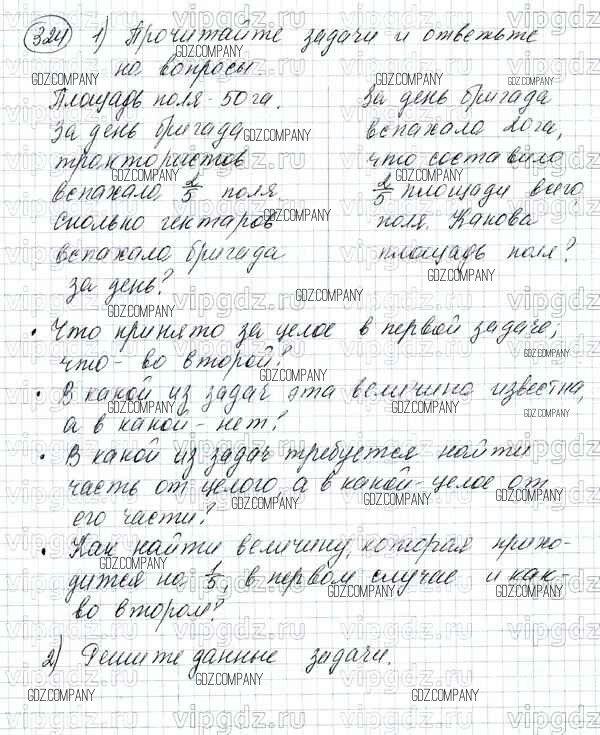 324 1) Прочитайте задачи и ответьте
на вопросы.
Площадь поля - 50 га.
За день бригада
трактористов
вспахала 2/5 поля.
Сколько гектаров
вспахала бригада
за день?
За день бригада
вспахала 20 га,
что составило
2/5 площади всего
поля. Какова
площадь поля?
• Что принято за целое в первой задаче,
что - во второй?
• В какой из задач эта величина известна,
а в какой - нет?
• В какой из задач требуется найти
часть от целого, а в какой - целое от
его части?
• Как найти величину, которая прихо-
дится на 1/5, в первом случае и как -
во втором?
2) Решите данные задачи.